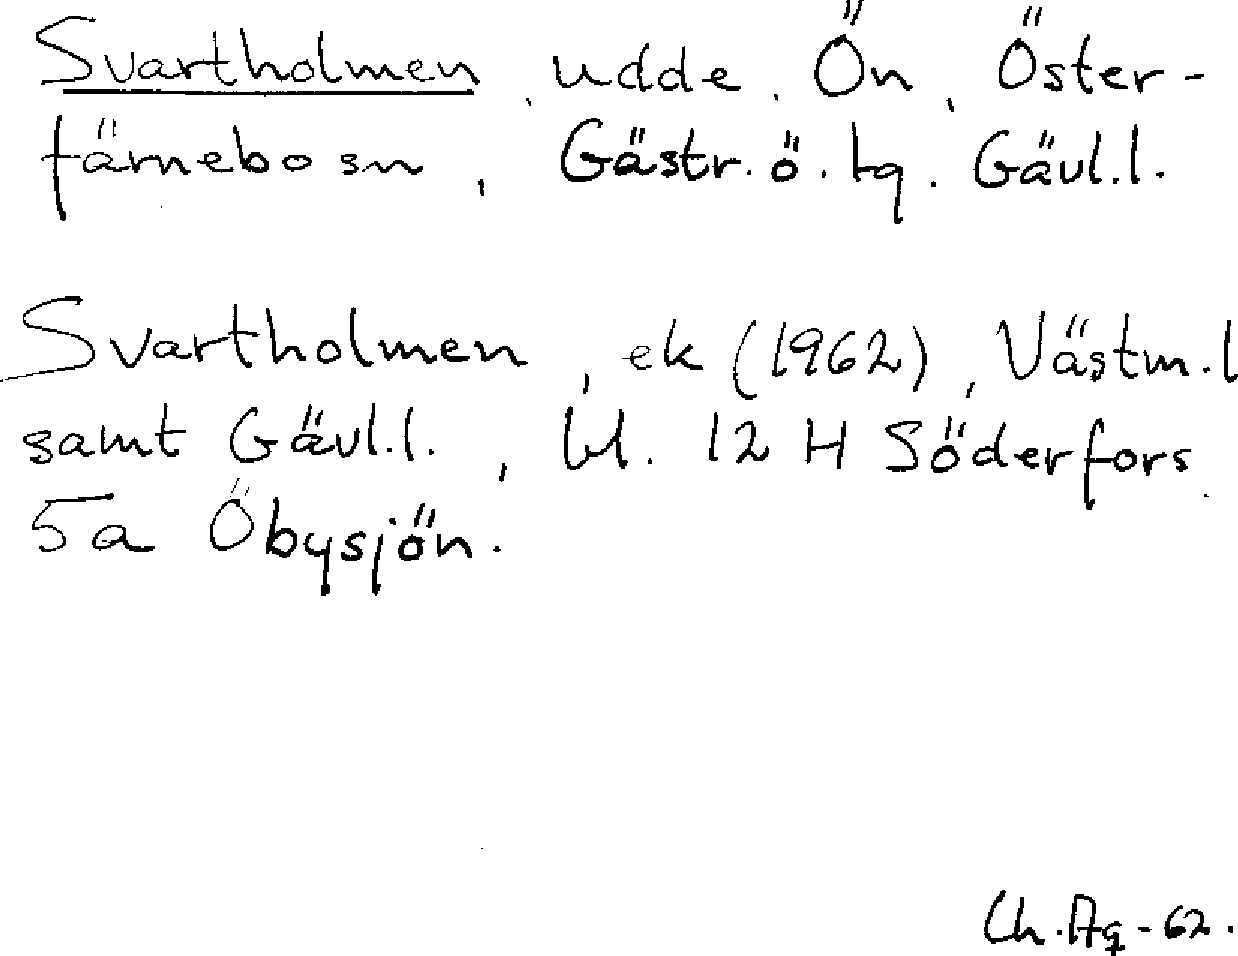 Svartholmen, udde, Ön, Öster-
färnebo sn, Gästr. ö. tg. Gävl.l.
Svartholmen, ek (1962), Västm.l
samt Gävl.l., bl. 12 H Söderfors
5a Öbysjön.
Ch. Ag -62.